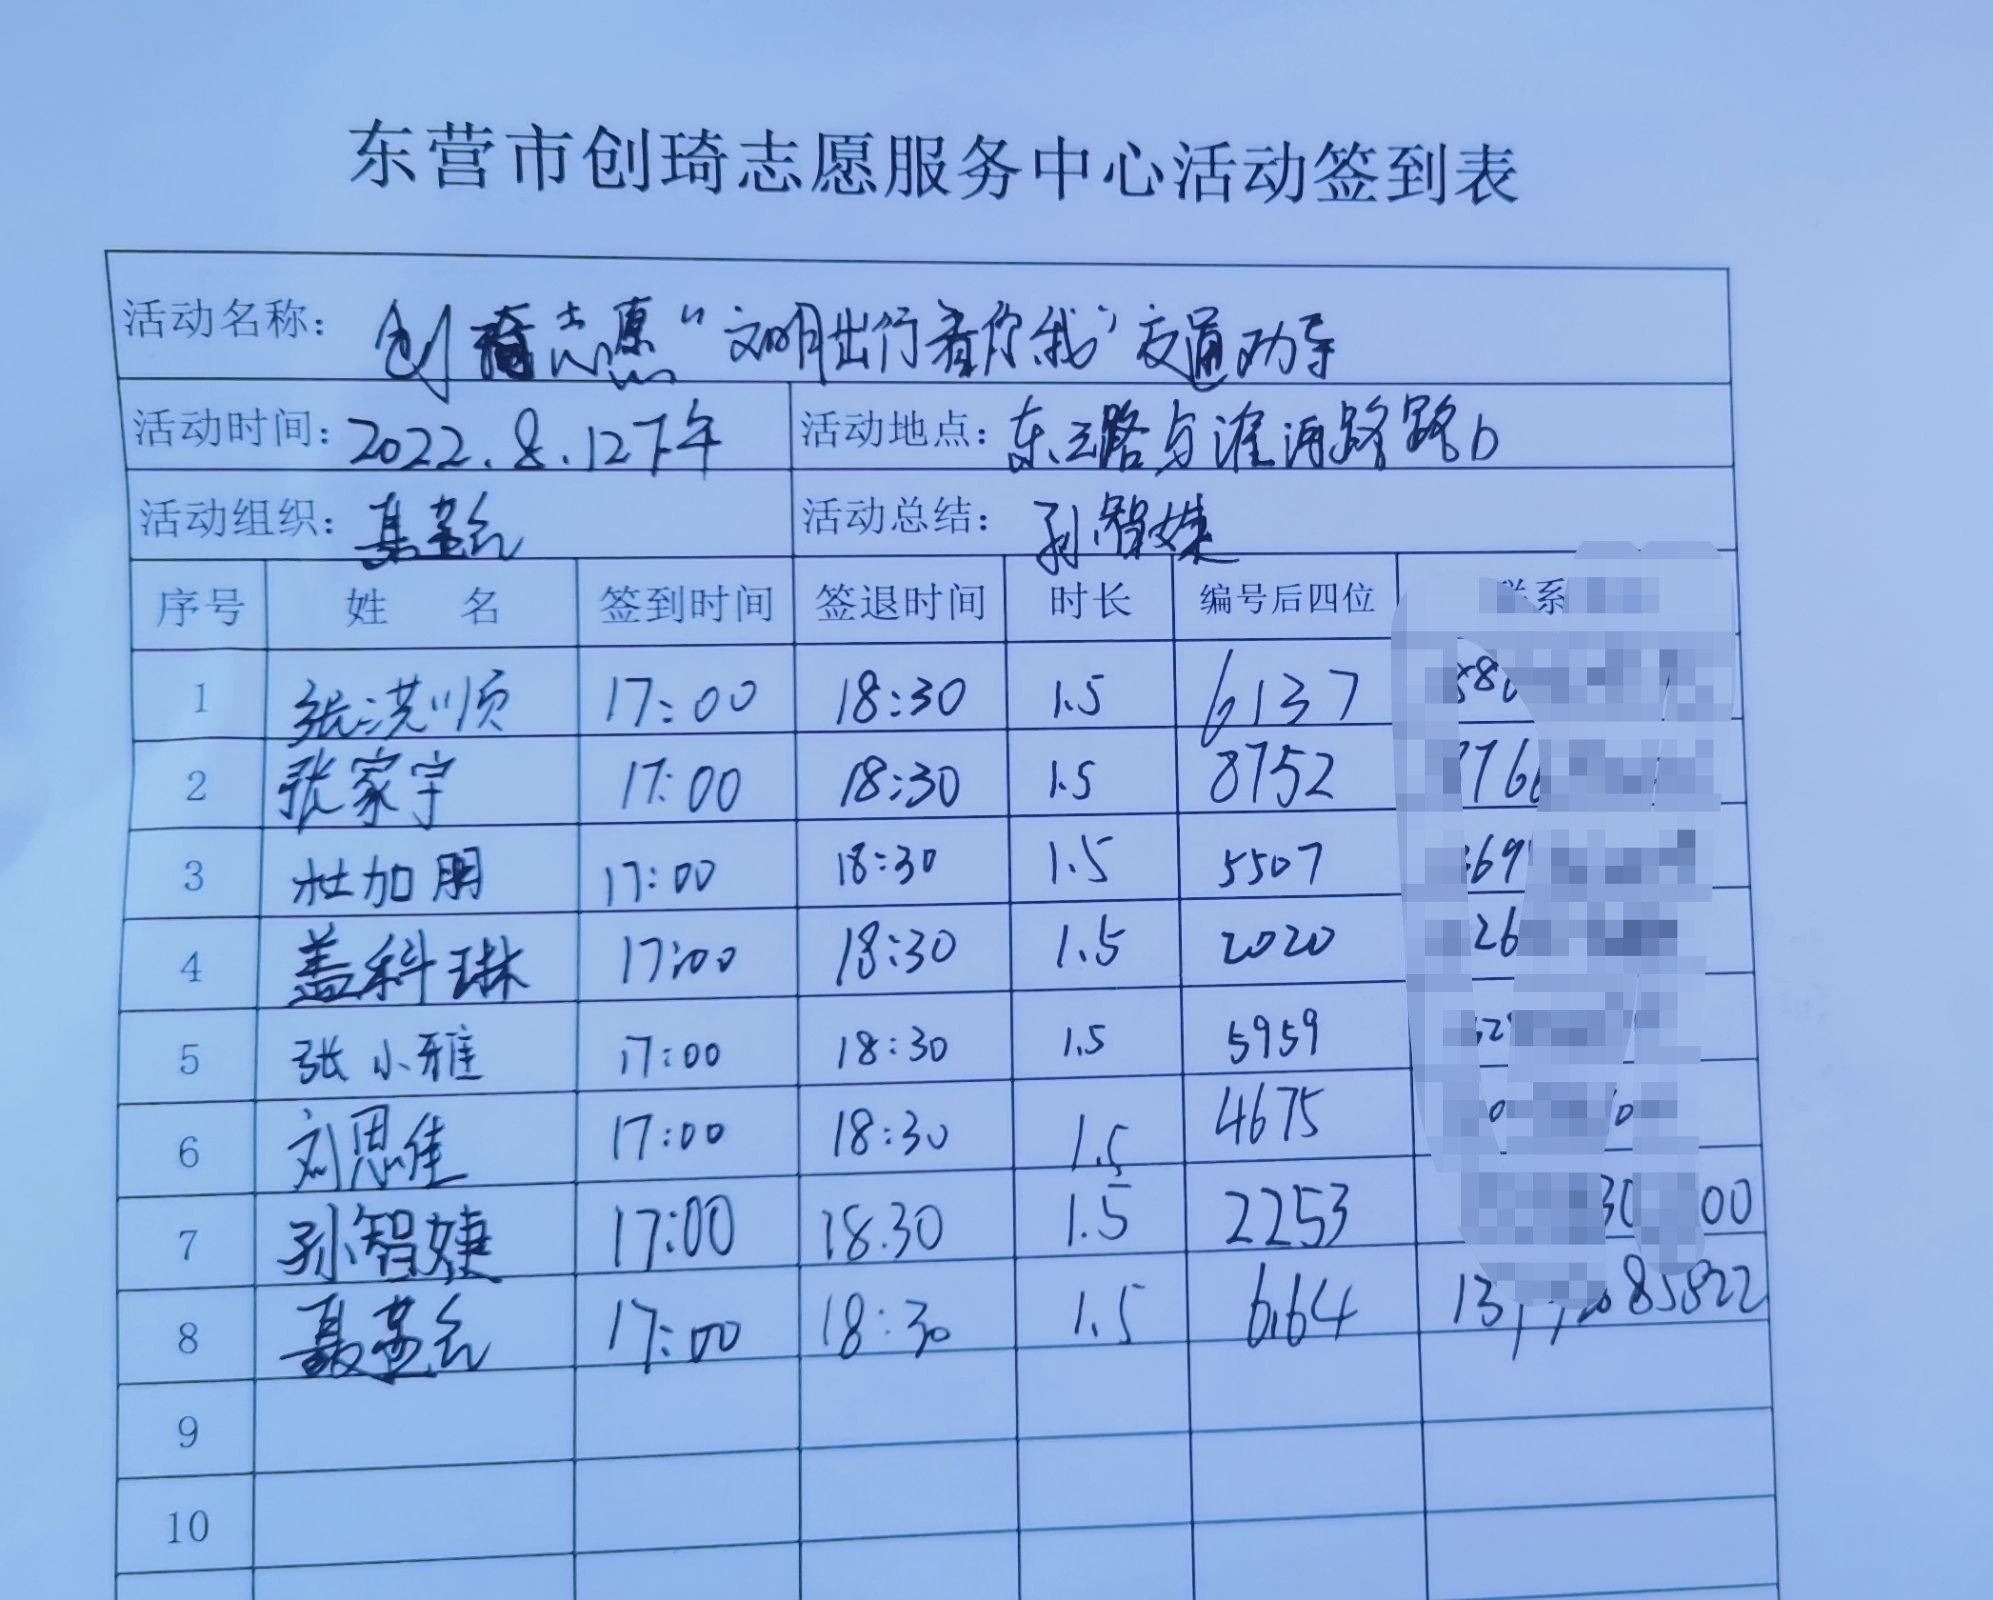 东营市创琦志愿服务中心活动签到表
活动名称: 创琦志愿“文明出行看你我”交通劝导
活动时间: 2022.8.12下午 活动地点: 东三路与淮河路路口
活动组织: 聂 活动总结: 孙智婕
序号 姓 名 签到时间 签退时间 时长 编号后四位 联系
1 张洪顺 17:00 18:30 1.5 6137
2 张家宇 17:00 18:30 1.5 8752
3 杜加朋 17:00 18:30 1.5 5507
4 盖科琳 17:00 18:30 1.5 2020
5 张小雅 17:00 18:30 1.5 5959
6 刘思佳 17:00 18:30 1.5 4675
7 孙智婕 17:00 18.30 1.5 2253
8 聂 17:00 18:30 1.5
9
10